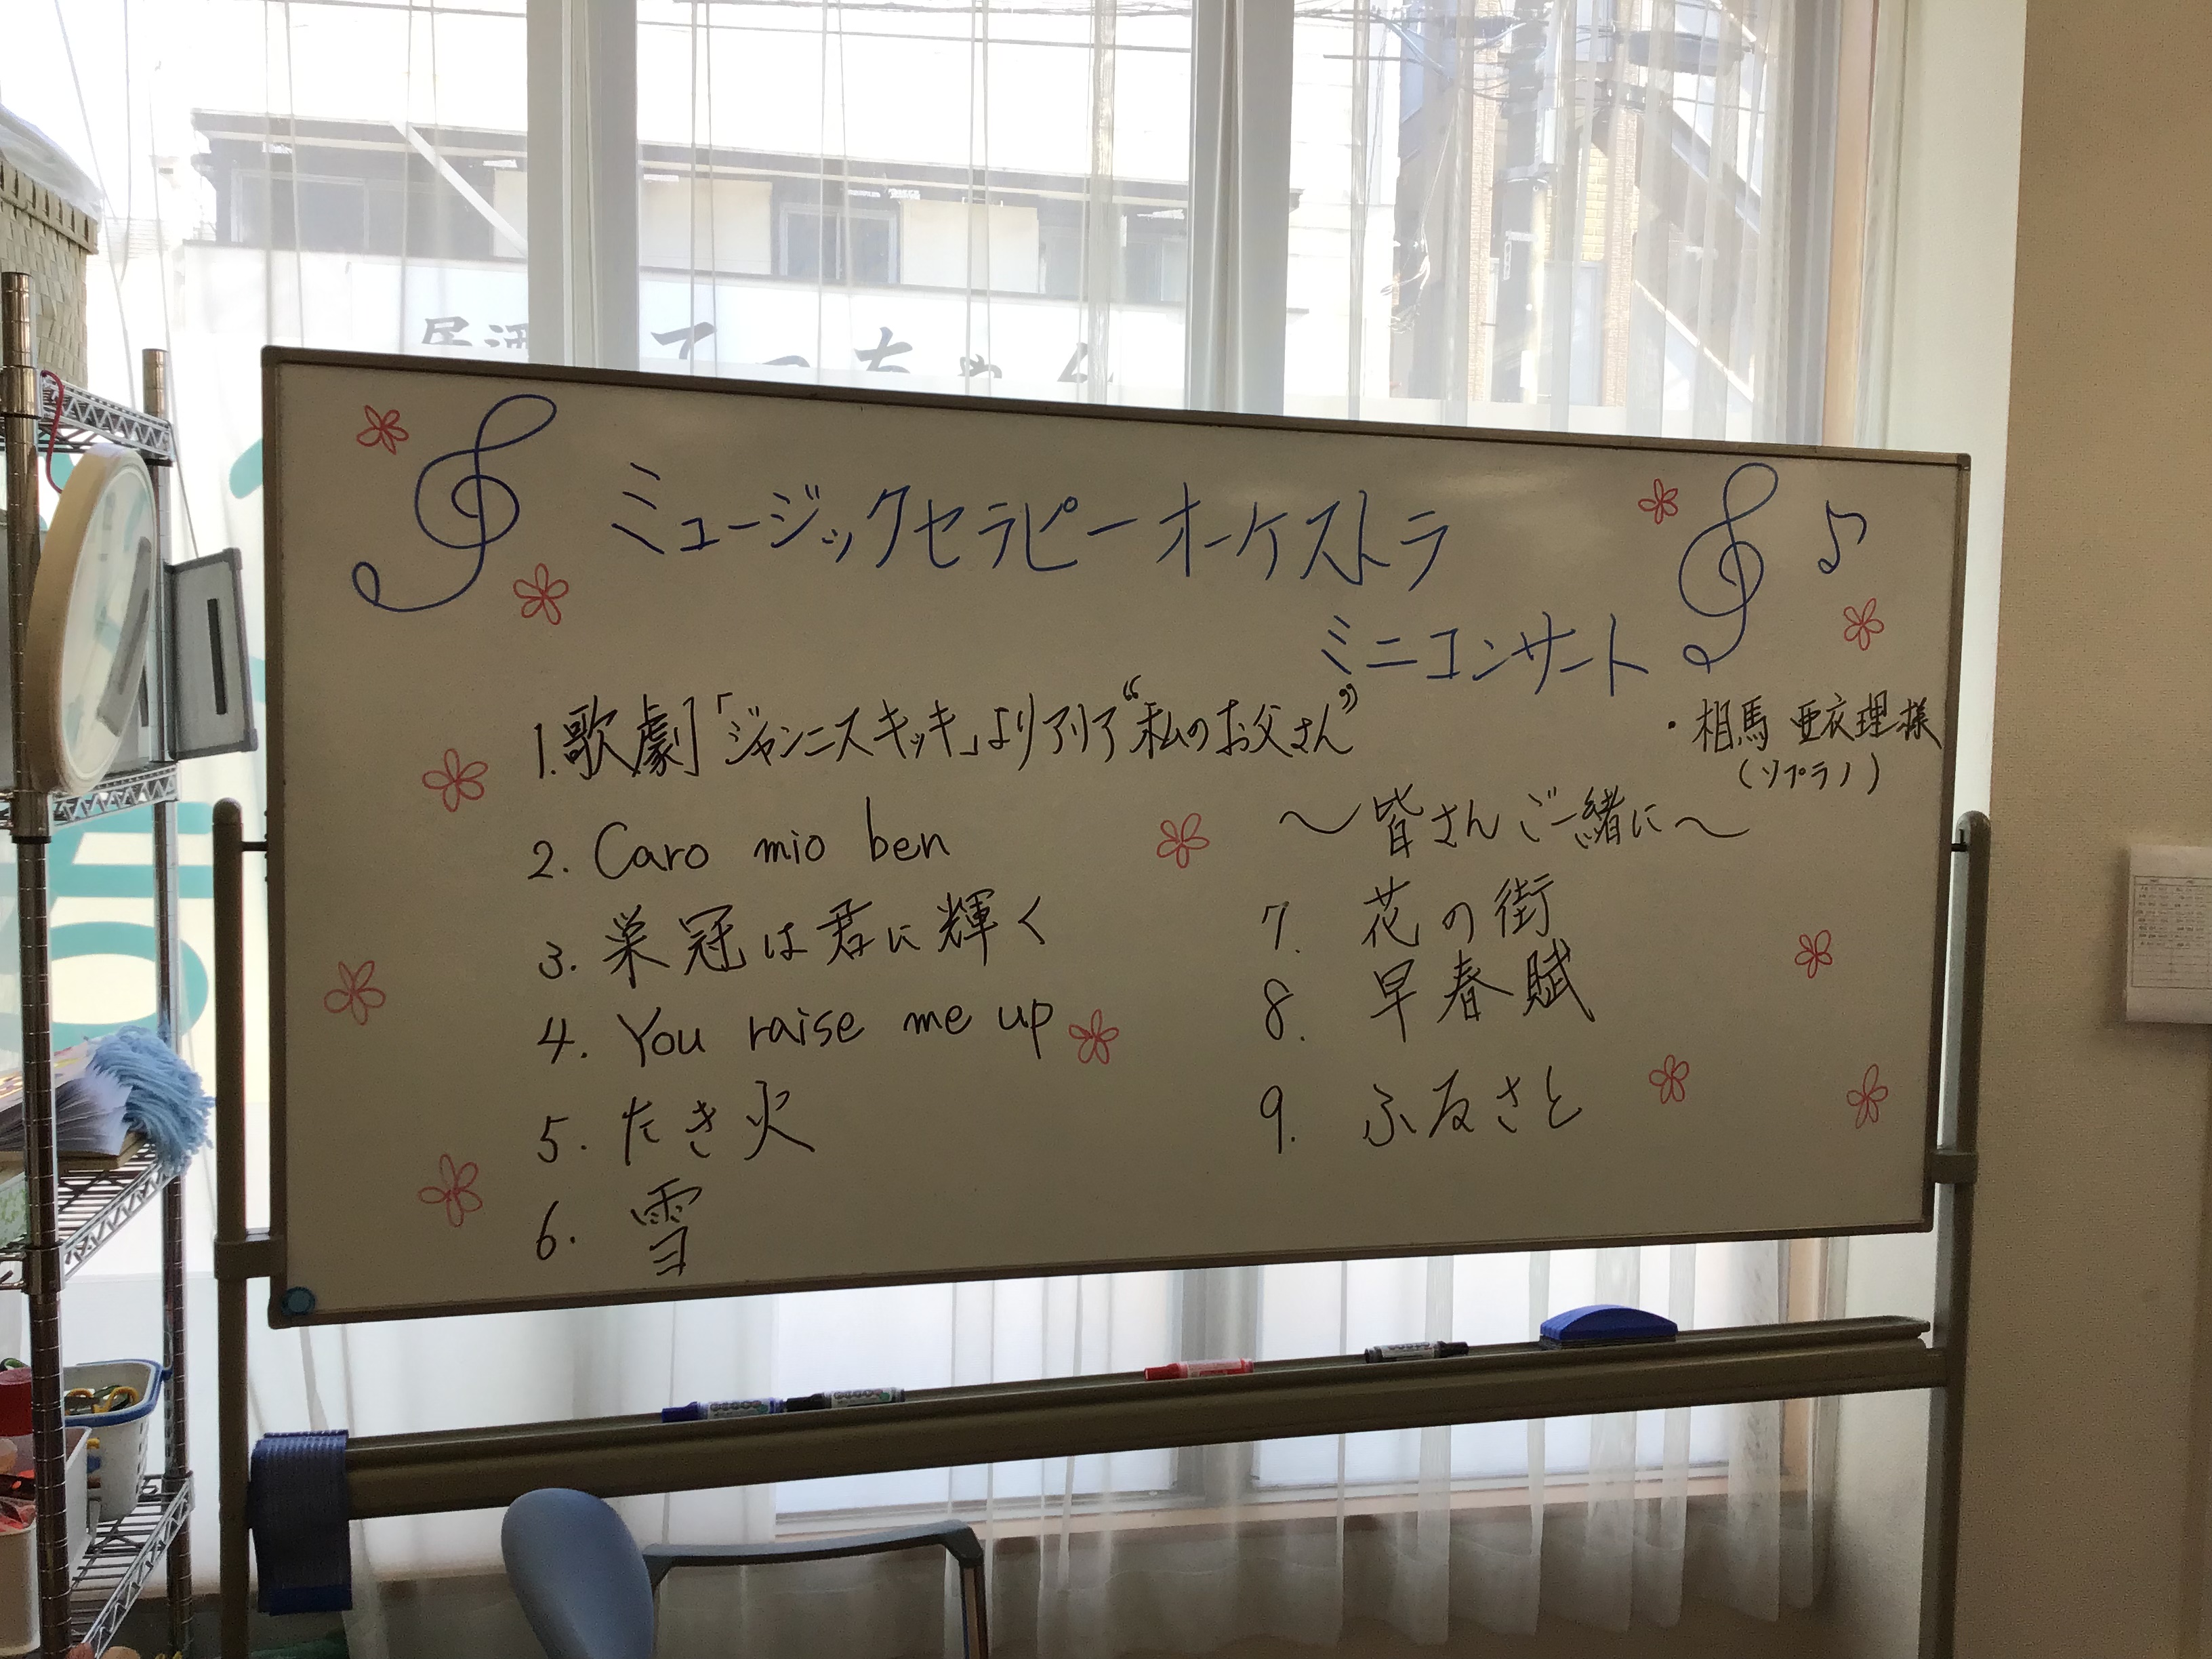 居酒 てっちゃん
ミュージックセラピーオーケストラ
ミニコンサート
1.歌劇「ジャンニスキッキ」よりアリア“私のお父さん”
・相馬 亜衣理様
(ソプラノ)
2. Caro mio ben
3. 栄冠は君に輝く
4. You raise me up
5. たき火
6. 雪
～皆さんご一緒に～
7. 花の街
8. 早春賦
9. ふるさと